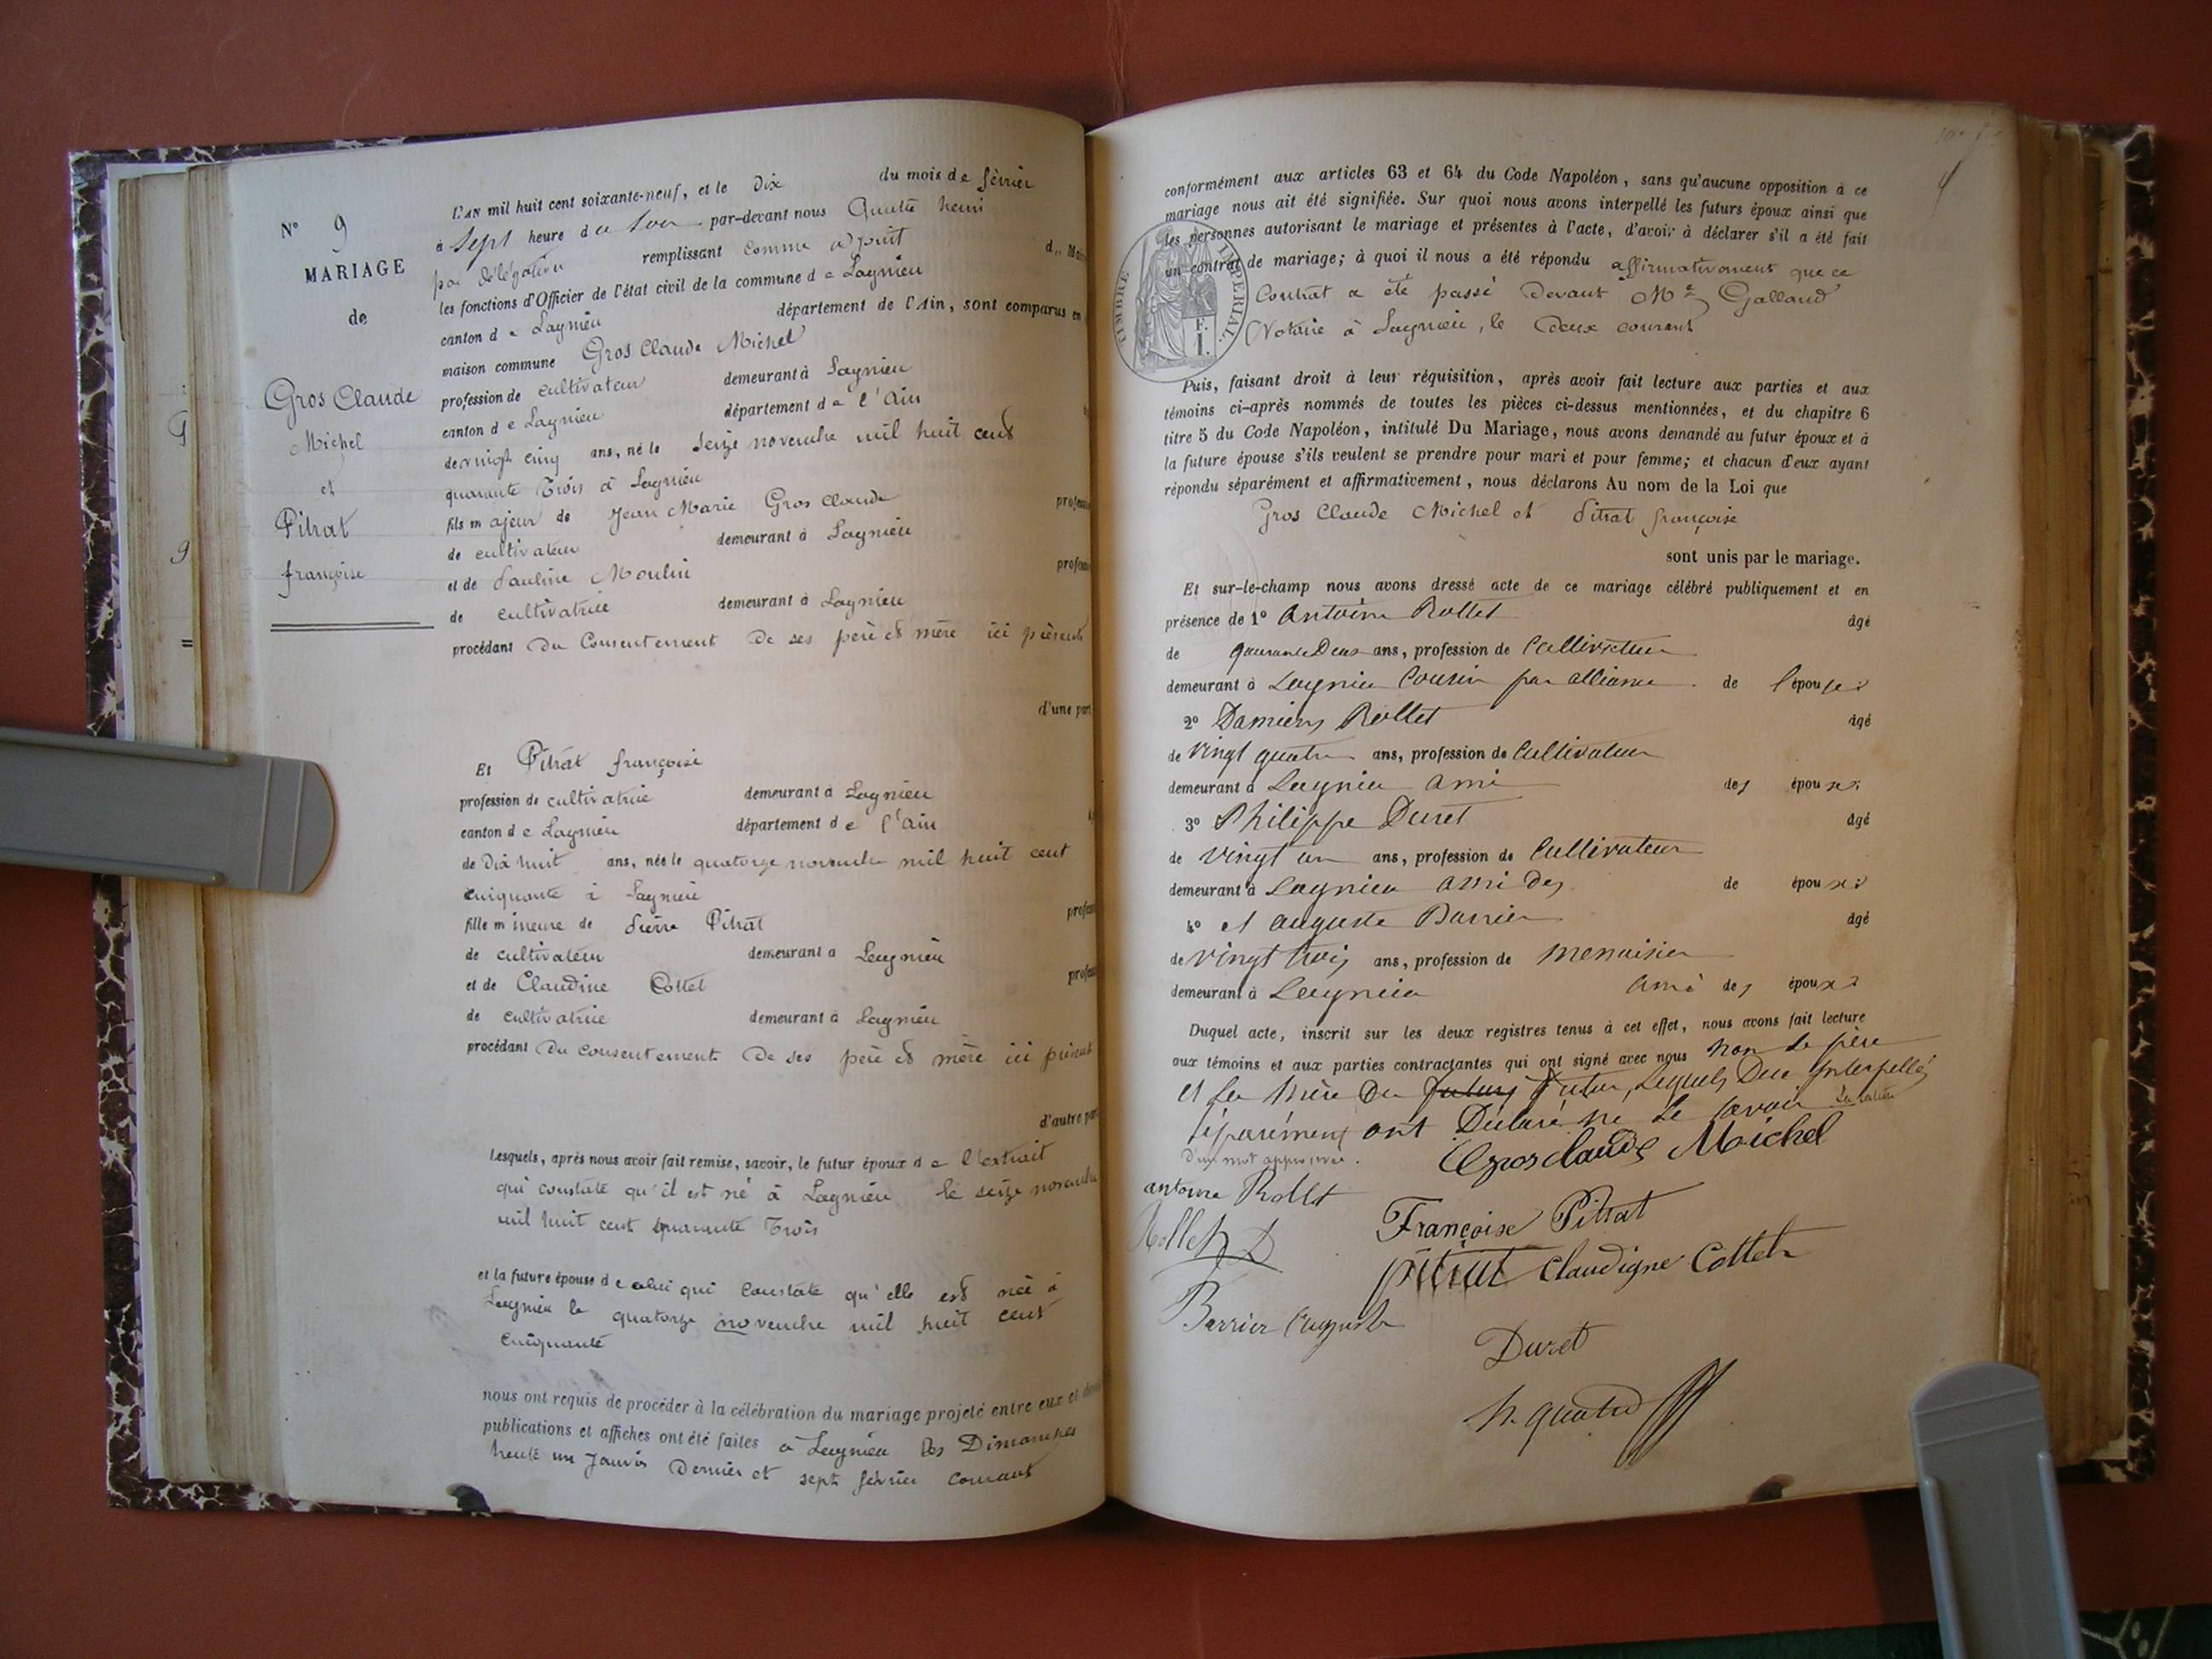 N° 9
MARIAGE
de
Gros Claude
Michel
et
Pitrat
françoise
L'AN mil huit cent soixante-neuf, et le Dix du mois de février
à Sept heure du Soir par-devant nous Quatre henri
par délégation remplissant comme adjoint d
les fonctions d'Officier de l'état civil de la commune de Lagnieu
canton de Lagnieu département de l'Ain, sont comparus en
maison commune Gros Claude Michel
profession de cultivateur demeurant à Lagnieu
canton de Lagnieu département de l'Ain
de vingt cinq ans, né le Seize novembre mil huit cent
quarante Trois à Lagnieu
fils majeur de Jean Marie Gros Claude
de cultivateur demeurant à Lagnieu
et de Pauline Moulin
de cultivatrice demeurant à Lagnieu
procédant Du Consentement De ses père et mère ici présents
d'une part
Et Pitrat françoise
profession de cultivatrice demeurant à Lagnieu
canton de Lagnieu département de l'Ain
de Dix huit ans, née le quatorze novembre mil huit cent
cinquante à Lagnieu
fille mineure de Pierre Pitrat
de cultivateur demeurant à Lagnieu
et de Claudine Cottet
de cultivatrice demeurant à Lagnieu
procédant Du consentement De ses père et mère ici présents
d'autre part
Lesquels, après nous avoir fait remise, savoir, le futur époux de l'extrait
qui constate qu'il est né à Lagnieu le seize novembre
mil huit cent quarante Trois
et la future épouse de celui qui Constate qu'elle est née à
Lagnieu le quatorze novembre mil huit cent
cinquante
nous ont requis de procéder à la célébration du mariage projeté entre eux et dont
publications et affiches ont été faites à Lagnieu les Dimanches
trente un Janvier Dernier et sept février courant
conformément aux articles 63 et 64 du Code Napoléon, sans qu'aucune opposition à ce
mariage nous ait été signifiée. Sur quoi nous avons interpellé les futurs époux ainsi que
les personnes autorisant le mariage et présentes à l'acte, d'avoir à déclarer s'il a été fait
un contrat de mariage; à quoi il nous a été répondu affirmativement que ce
Contrat a été passé Devant Me Galland
Notaire à Lagnieu, le Deux courant
TIMBRE IMPERIAL
F.
1.
Puis, faisant droit à leur réquisition, après avoir fait lecture aux parties et aux
témoins ci-après nommés de toutes les pièces ci-dessus mentionnées, et du chapitre 6
titre 5 du Code Napoléon, intitulé Du Mariage, nous avons demandé au futur époux et à
la future épouse s'ils veulent se prendre pour mari et pour femme; et chacun d'eux ayant
répondu séparément et affirmativement, nous déclarons Au nom de la Loi que
Gros Claude Michel et Pitrat françoise
sont unis par le mariage.
Et sur-le-champ nous avons dressé acte de ce mariage célébré publiquement et en
présence de 1° Antoine Rollet âgé
de quarante Deux ans, profession de Cultivateur
demeurant à Lagnieu Cousin par alliance de l'épouse
2° Damiens Rollet âgé
de vingt quatre ans, profession de Cultivateur
demeurant à Lagnieu ami des époux
3° Philippe Duret âgé
de vingt un ans, profession de Cultivateur
demeurant à Lagnieu ami des de époux
4° et auguste Barrier âgé
de vingt trois ans, profession de menuisier
demeurant à Lagnieu ami des époux
Duquel acte, inscrit sur les deux registres tenus à cet effet, nous avons fait lecture
aux témoins et aux parties contractantes qui ont signé avec nous non le père
et la mère du futurs futur, lequels Deu Interpellés
séparément ont Déclaré ne le savoir La rature
d'un mot approuvée.
Grosclaude Michel
antoine Rollet
Françoise Pitrat
Rollet D
pitrat Claudigne Cottet
Barrier Auguste
Duret
h. quatre